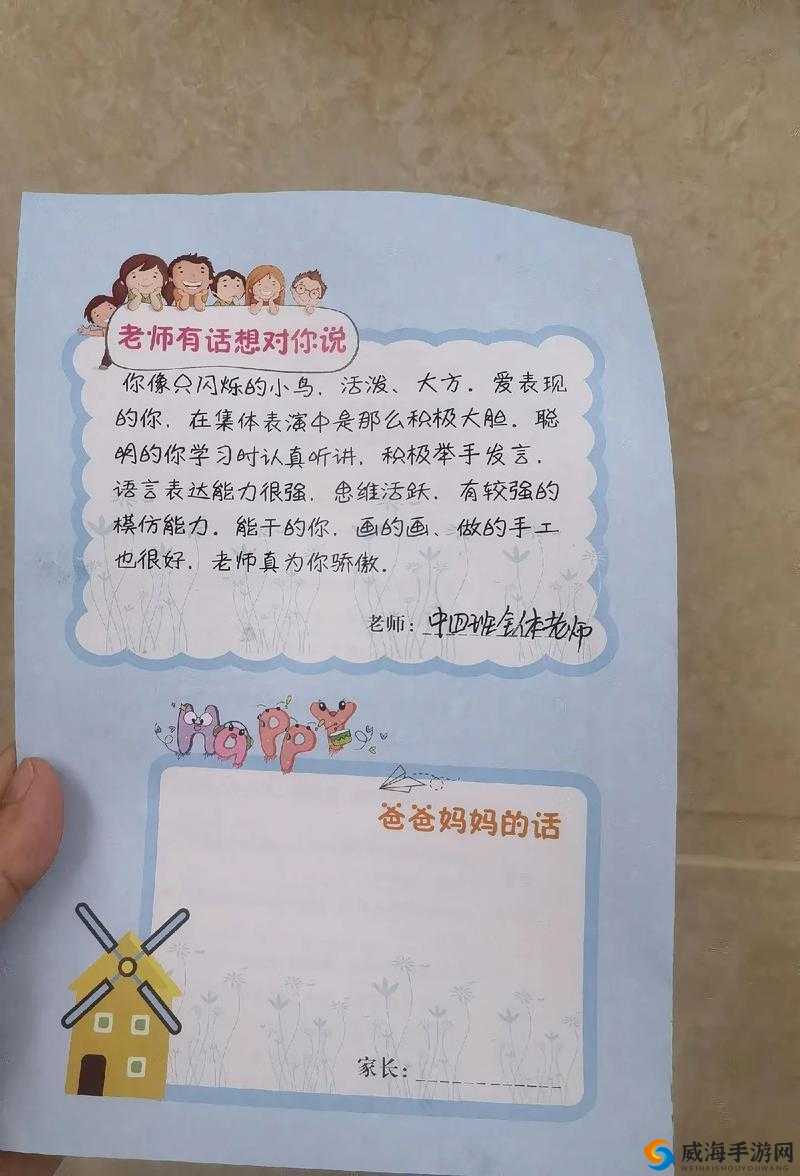 老师有话想对你说
你像只闪烁的小鸟，活泼、大方。爱表现
的你，在集体表演中是那么积极大胆。聪
明的你学习时认真听讲，积极举手发言，
语言表达能力很强，思维活跃，有较强的
模仿能力。能干的你，画的画、做的手工
也很好，老师真为你骄傲。
老师：中四班全体老师
HaPPY
爸爸妈妈的话
家长：
威海手游网
WEIHAISHOUYOUWANG